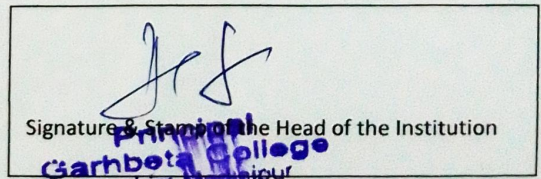 Signature & Stamp of the Head of the Institution
Principal
Garhbeta College